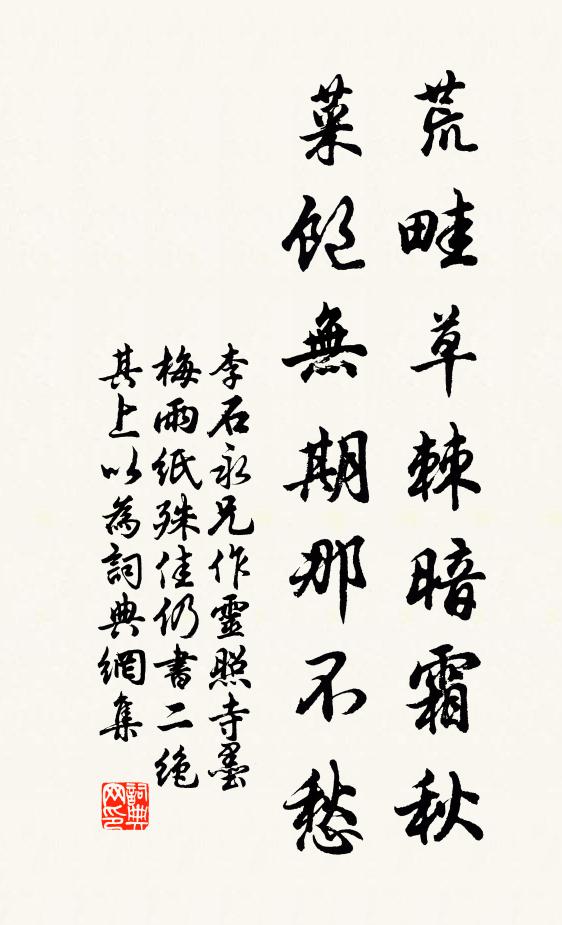 荒畦草棘暗霜秋
菜飽無期那不愁
李石永兄作靈照寺墨
梅雨紙殊佳仍書二绝
其上以為詞典網集
詞典网印